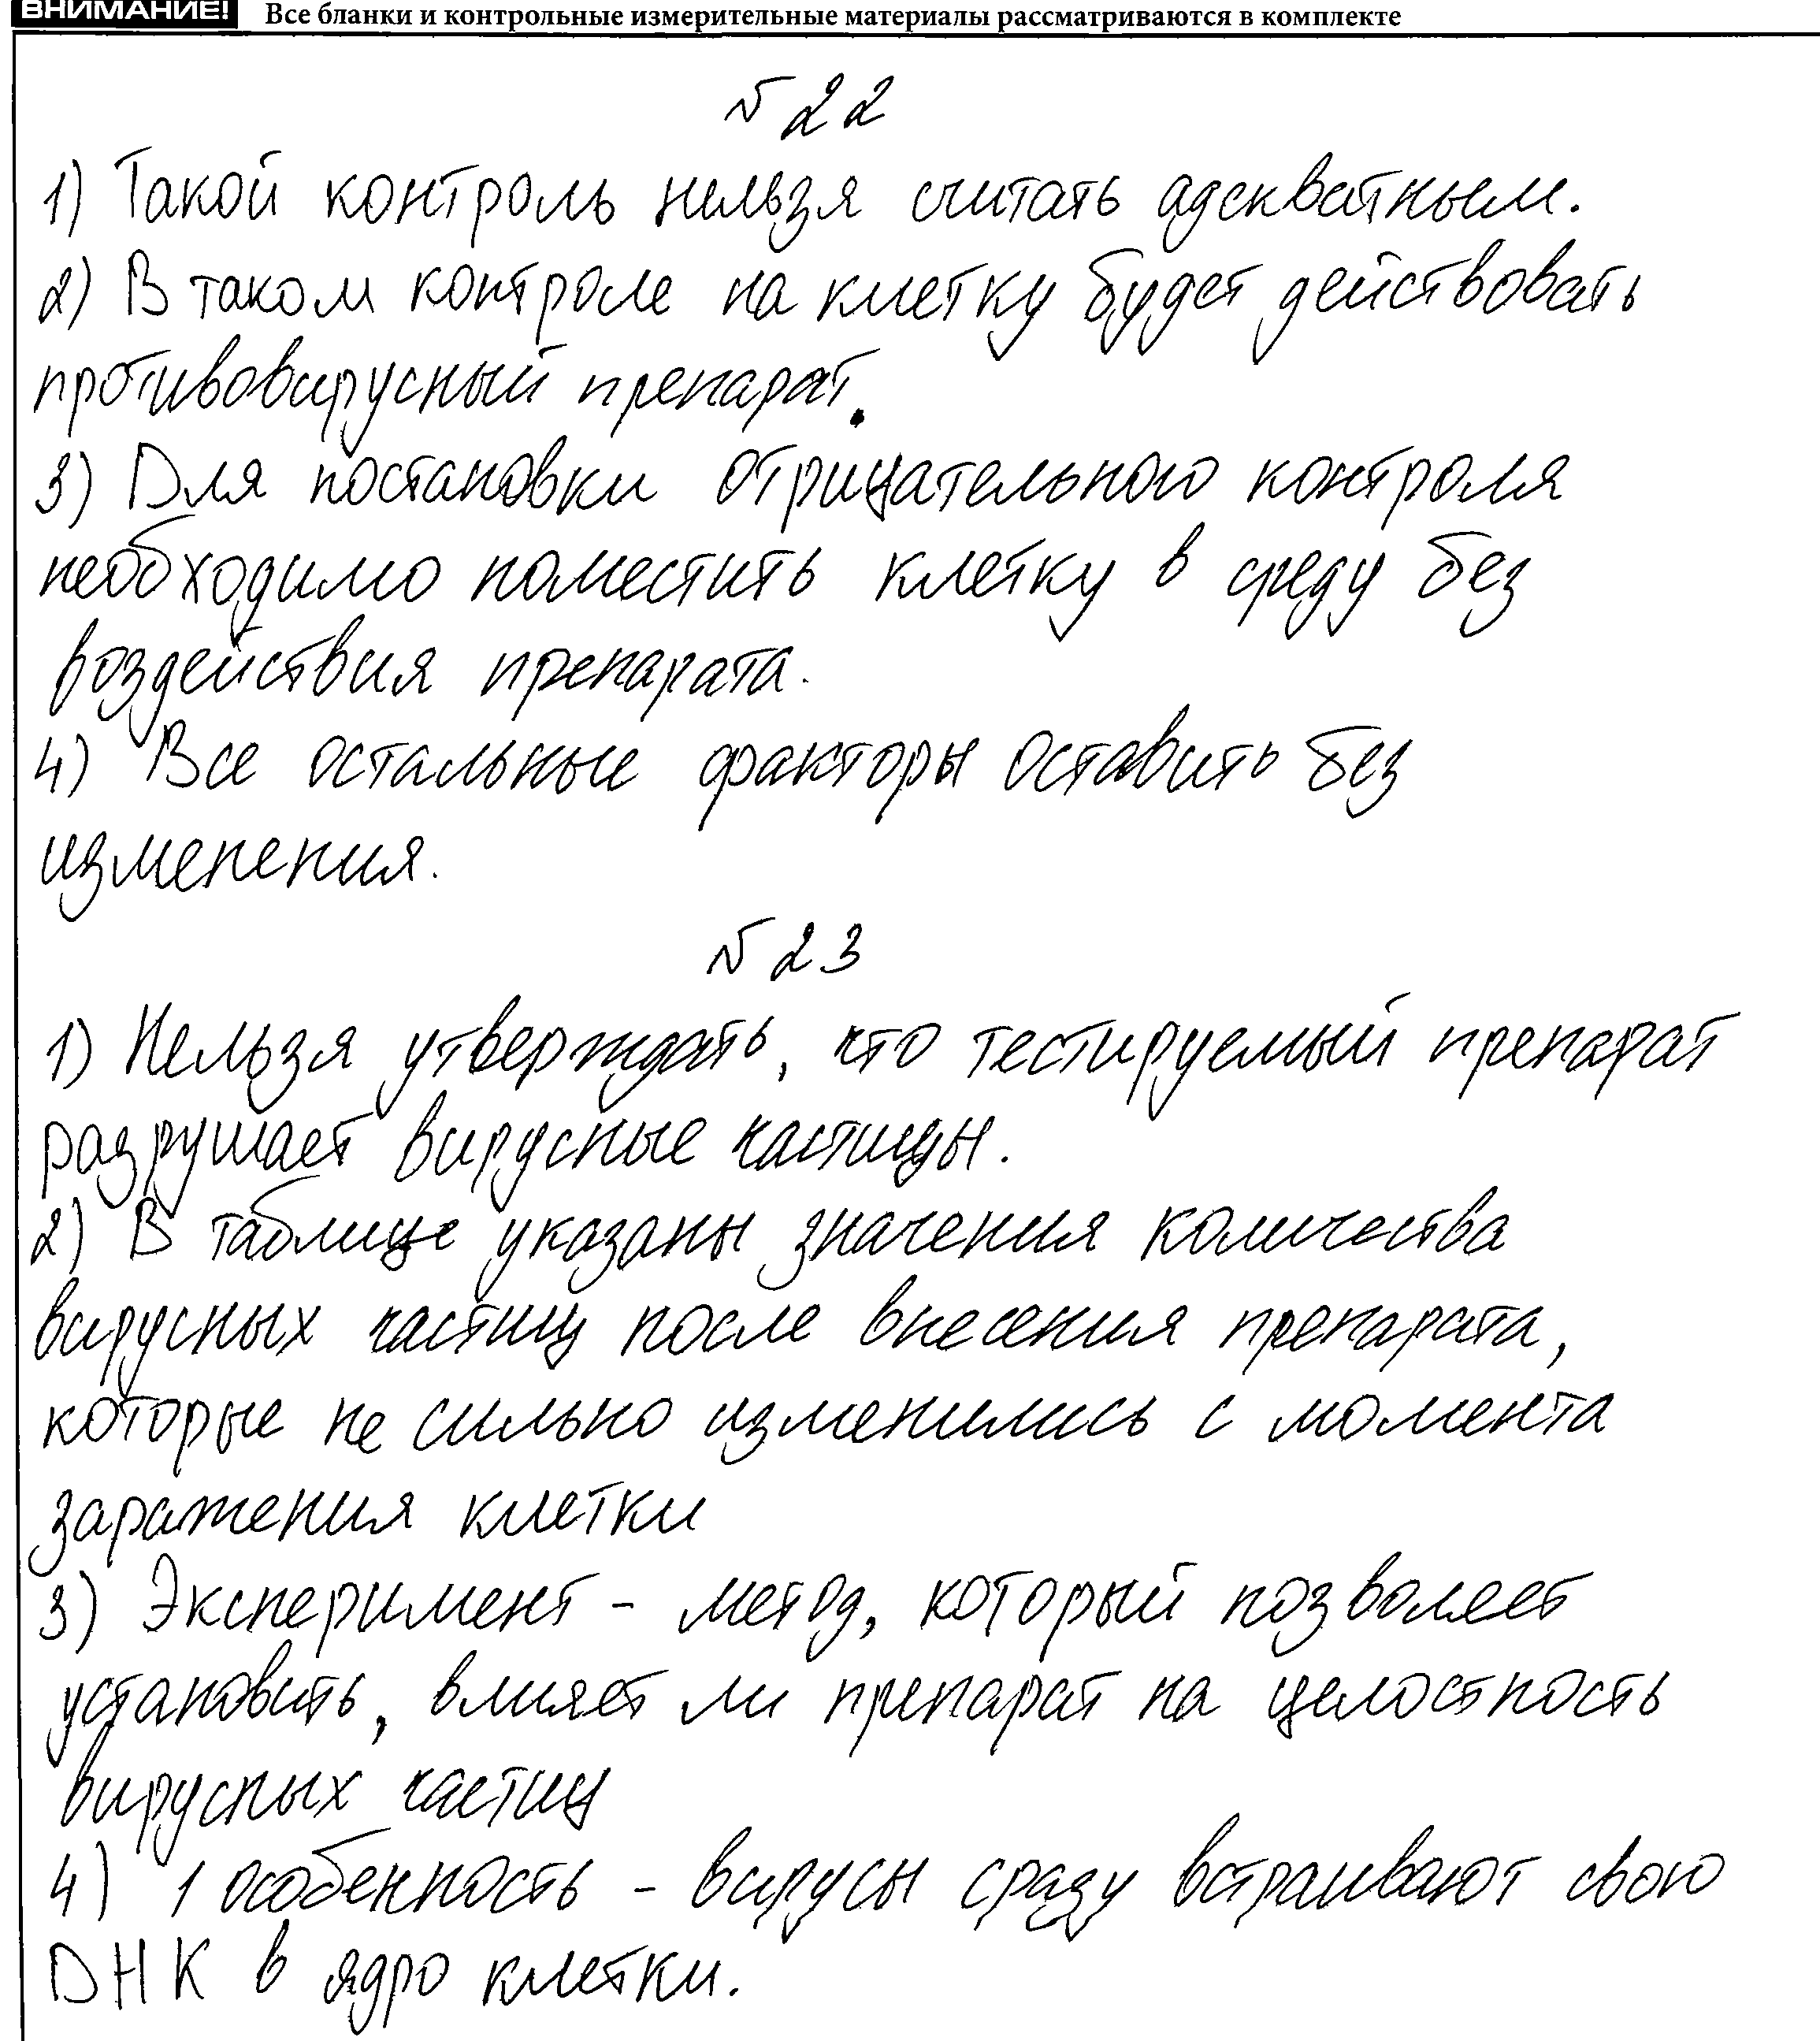 ВНИМАНИЕ! Все бланки и контрольные измерительные материалы рассматриваются в комплекте
№ 22
1) Такой контроль нельзя считать адекватным.
2) В таком контроле на клетку будет действовать
противовирусный препарат.
3) Для постановки отрицательного контроля
необходимо поместить клетку в среду без
воздействия препарата.
4) Все остальные факторы оставить без
изменения.
№ 23
1) Нельзя утверждать, что тестируемый препарат
разрушает вирусные частицы.
2) В таблице указаны значения количества
вирусных частиц после внесения препарата,
которые не сильно изменились с момента
заражения клетки
3) Эксперимент - метод, который позволяет
установить, влияет ли препарат на целостность
вирусных частиц
4) 1 особенность - вирусы сразу встраивают свою
ДНК в ядро клетки.